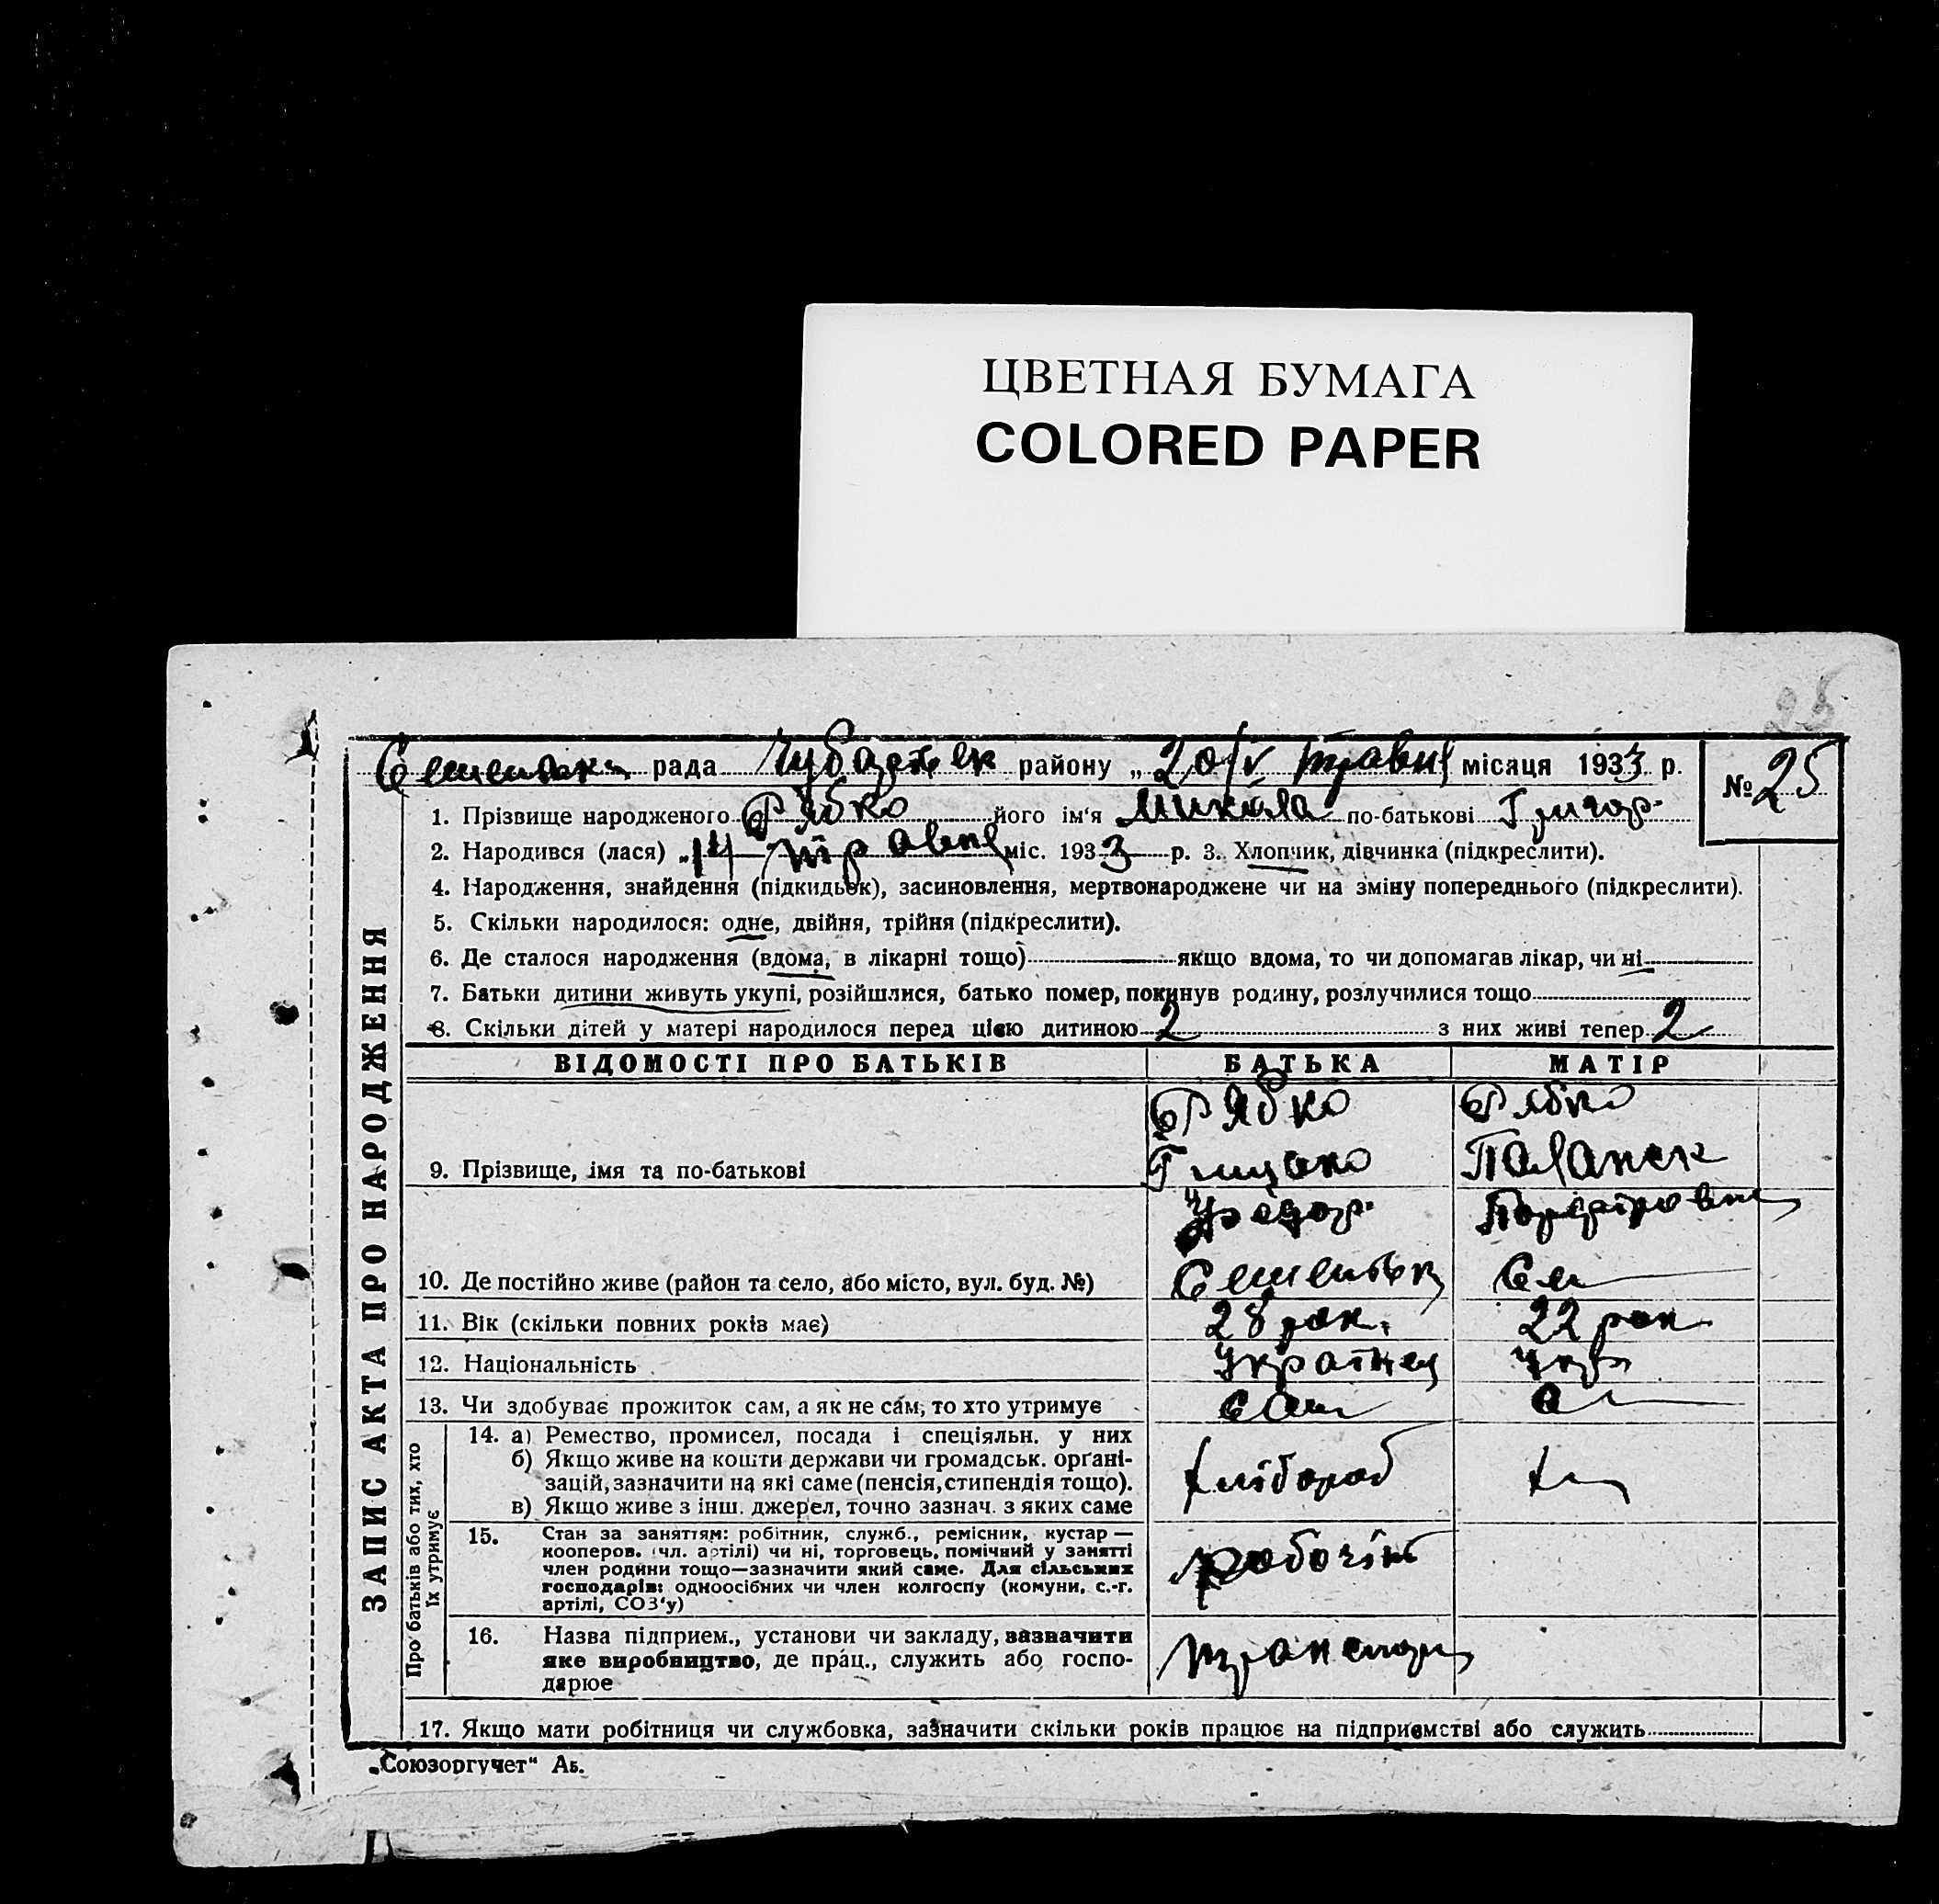 ЦВЕТНАЯ БУМАГА
COLORED PAPER
25
рада району „20/V травня місяця 1933 р. № 25
1. Прізвище народженого Рябко його ім‘я Микола по-батькові Григор.
2. Народився (лася) „14 травня міс. 1933 р. 3. Хлопчик, дівчинка (підкреслити).
4. Народження, знайдення (підкидьок), засиновлення, мертвонароджене чи на зміну попереднього (підкреслити).
5. Скільки народилося: одне, двійня, трійня (підкреслити).
6. Де сталося народження (вдома, в лікарні тощо) якщо вдома, то чи допомагав лікар, чи ні
7. Батьки дитини живуть укупі, розійшлися, батько помер, покинув родину, розлучилися тощо
8. Скільки дітей у матері народилося перед цією дитиною 2 з них живі тепер 2
ЗАПИС АКТА ПРО НАРОДЖЕННЯ
ВІДОМОСТІ ПРО БАТЬКІВ БАТЬКА МАТІР
Рябко Рябко
9. Прізвище, імя та по-батькові
10. Де постійно живе (район та село, або місто, вул. буд. №)
11. Вік (скільки повних років має) 28 рок. 22 рок.
12. Національність Українец Укр
13. Чи здобуває прожиток сам, а як не сам, то хто утримує сам
Про батьків або тих, хто їх утримує
14. а) Ремество, промисел, посада і спеціяльн. у них
б) Якщо живе на кошти держави чи громадськ. орґані-
зацій, зазначити на які саме (пенсія, стипендія тощо).
в) Якщо живе з інш. джерел, точно зазнач. з яких саме
хлібороб
15. Стан за заняттям: робітник, служб., ремісник, кустар —
кооперов. (чл. артілі) чи ні, торговець, помічний у занятті
член родини тощо—зазначити який саме. Для сільських
господарів: одноосібних чи член колгоспу (комуни, с.-г.
артілі, СОЗ‘у)
робочій
16. Назва підприєм., установи чи закладу, зазначити
яке виробництво, де прац., служить або госпо-
дарює
17. Якщо мати робітниця чи службовка, зазначити скільки років працює на підприємстві або служить
„Союзоргучет“ Аб.